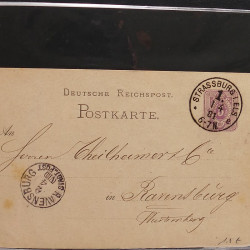 DEUTSCHE REICHSPOST.
POSTKARTE.
STRASSBURG I. ELS.
1
6-7N
An
Herren Theilheimer & Co
in Ravensburg
Württemberg
RAVENSBURG